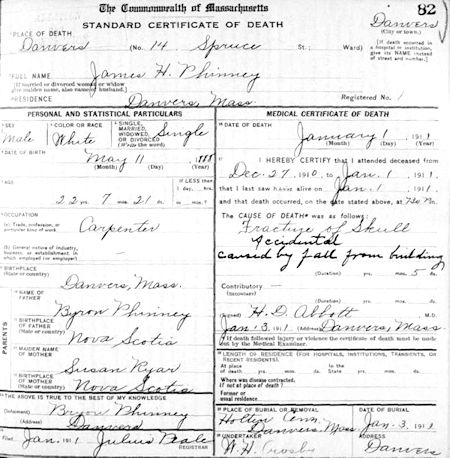 The Commonwealth of Massachusetts
82
STANDARD CERTIFICATE OF DEATH
Danvers
(City or town.)
PLACE OF DEATH
Danvers (No. 14 Spruce St.; Ward)
[If death occurred in a hospital or institution, give its NAME instead of street and number.]
FULL NAME James H. Phinney
[If married or divorced woman or widow give maiden name, also name of husband.]
RESIDENCE Danvers, Mass. Registered No. 1
PERSONAL AND STATISTICAL PARTICULARS
SEX Male
COLOR OR RACE White
SINGLE, MARRIED, WIDOWED, OR DIVORCED (Write the word) Single
DATE OF BIRTH
May 11
(Month) (Day) (Year)
AGE
If LESS than 1 day, hrs.
22 yrs. 7 mos. 21 ds.
OCCUPATION
(a) Trade, profession, or particular kind of work Carpenter
(b) General nature of industry, business, or establishment in which employed (or employer)
BIRTHPLACE
(State or country) Danvers, Mass.
PARENTS
NAME OF FATHER Byron Phinney
BIRTHPLACE OF FATHER
(State or country) Nova Scotia
MAIDEN NAME OF MOTHER Susan Ryar
BIRTHPLACE OF MOTHER
(State or country) Nova Scotia
THE ABOVE IS TRUE TO THE BEST OF MY KNOWLEDGE
(Informant) Byron Phinney
(Address) Danvers
Filed Jan. 191 Julius Peale
REGISTRAR
MEDICAL CERTIFICATE OF DEATH
DATE OF DEATH
January 1 1911
(Month) (Day) (Year)
I HEREBY CERTIFY that I attended deceased from
Dec. 27 1910 to Jan. 1 1911
that I last saw him alive on Jan. 1 1911
and that death occurred, on the date stated above, at m.
The CAUSE OF DEATH was as follows:
Fracture of Skull
Accidental
caused by fall from building
(Duration) yrs. mos. 5 ds.
Contributory
(SECONDARY)
(Duration) yrs. mos. ds.
(Signed) H. D. Abbott M.D.
Jan. 3 1911 (Address) Danvers, Mass
If death followed injury or violence the certificate of death must be made out by the Medical Examiner.
LENGTH OF RESIDENCE (FOR HOSPITALS, INSTITUTIONS, TRANSIENTS, OR RECENT RESIDENTS).
At place of death yrs. mos. ds. In the State yrs. mos. ds.
Where was disease contracted, if not at place of death?
Former or usual residence
PLACE OF BURIAL OR REMOVAL
Holten Cem. Danvers, Mass
DATE OF BURIAL
Jan. 3 1911
UNDERTAKER
W. H. Crosby
ADDRESS
Danvers